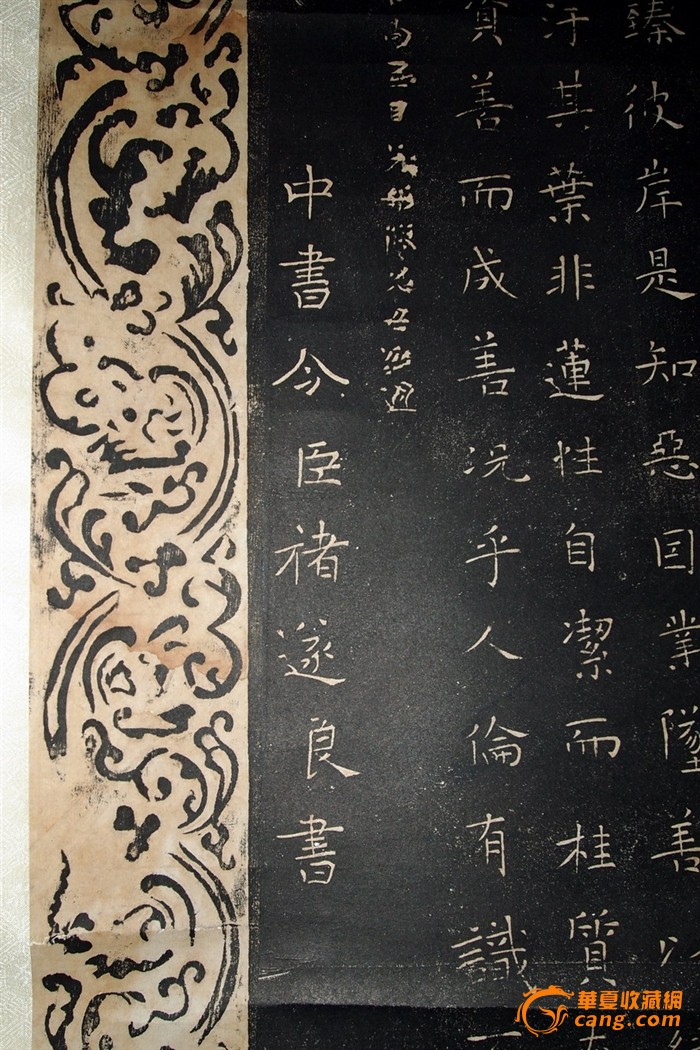 臻彼岸是知惡因業墜善
汙其葉非蓮性自潔而桂質
資善而成善況乎人倫有識
中書令臣褚遂良書
華夏收藏網
cang.com